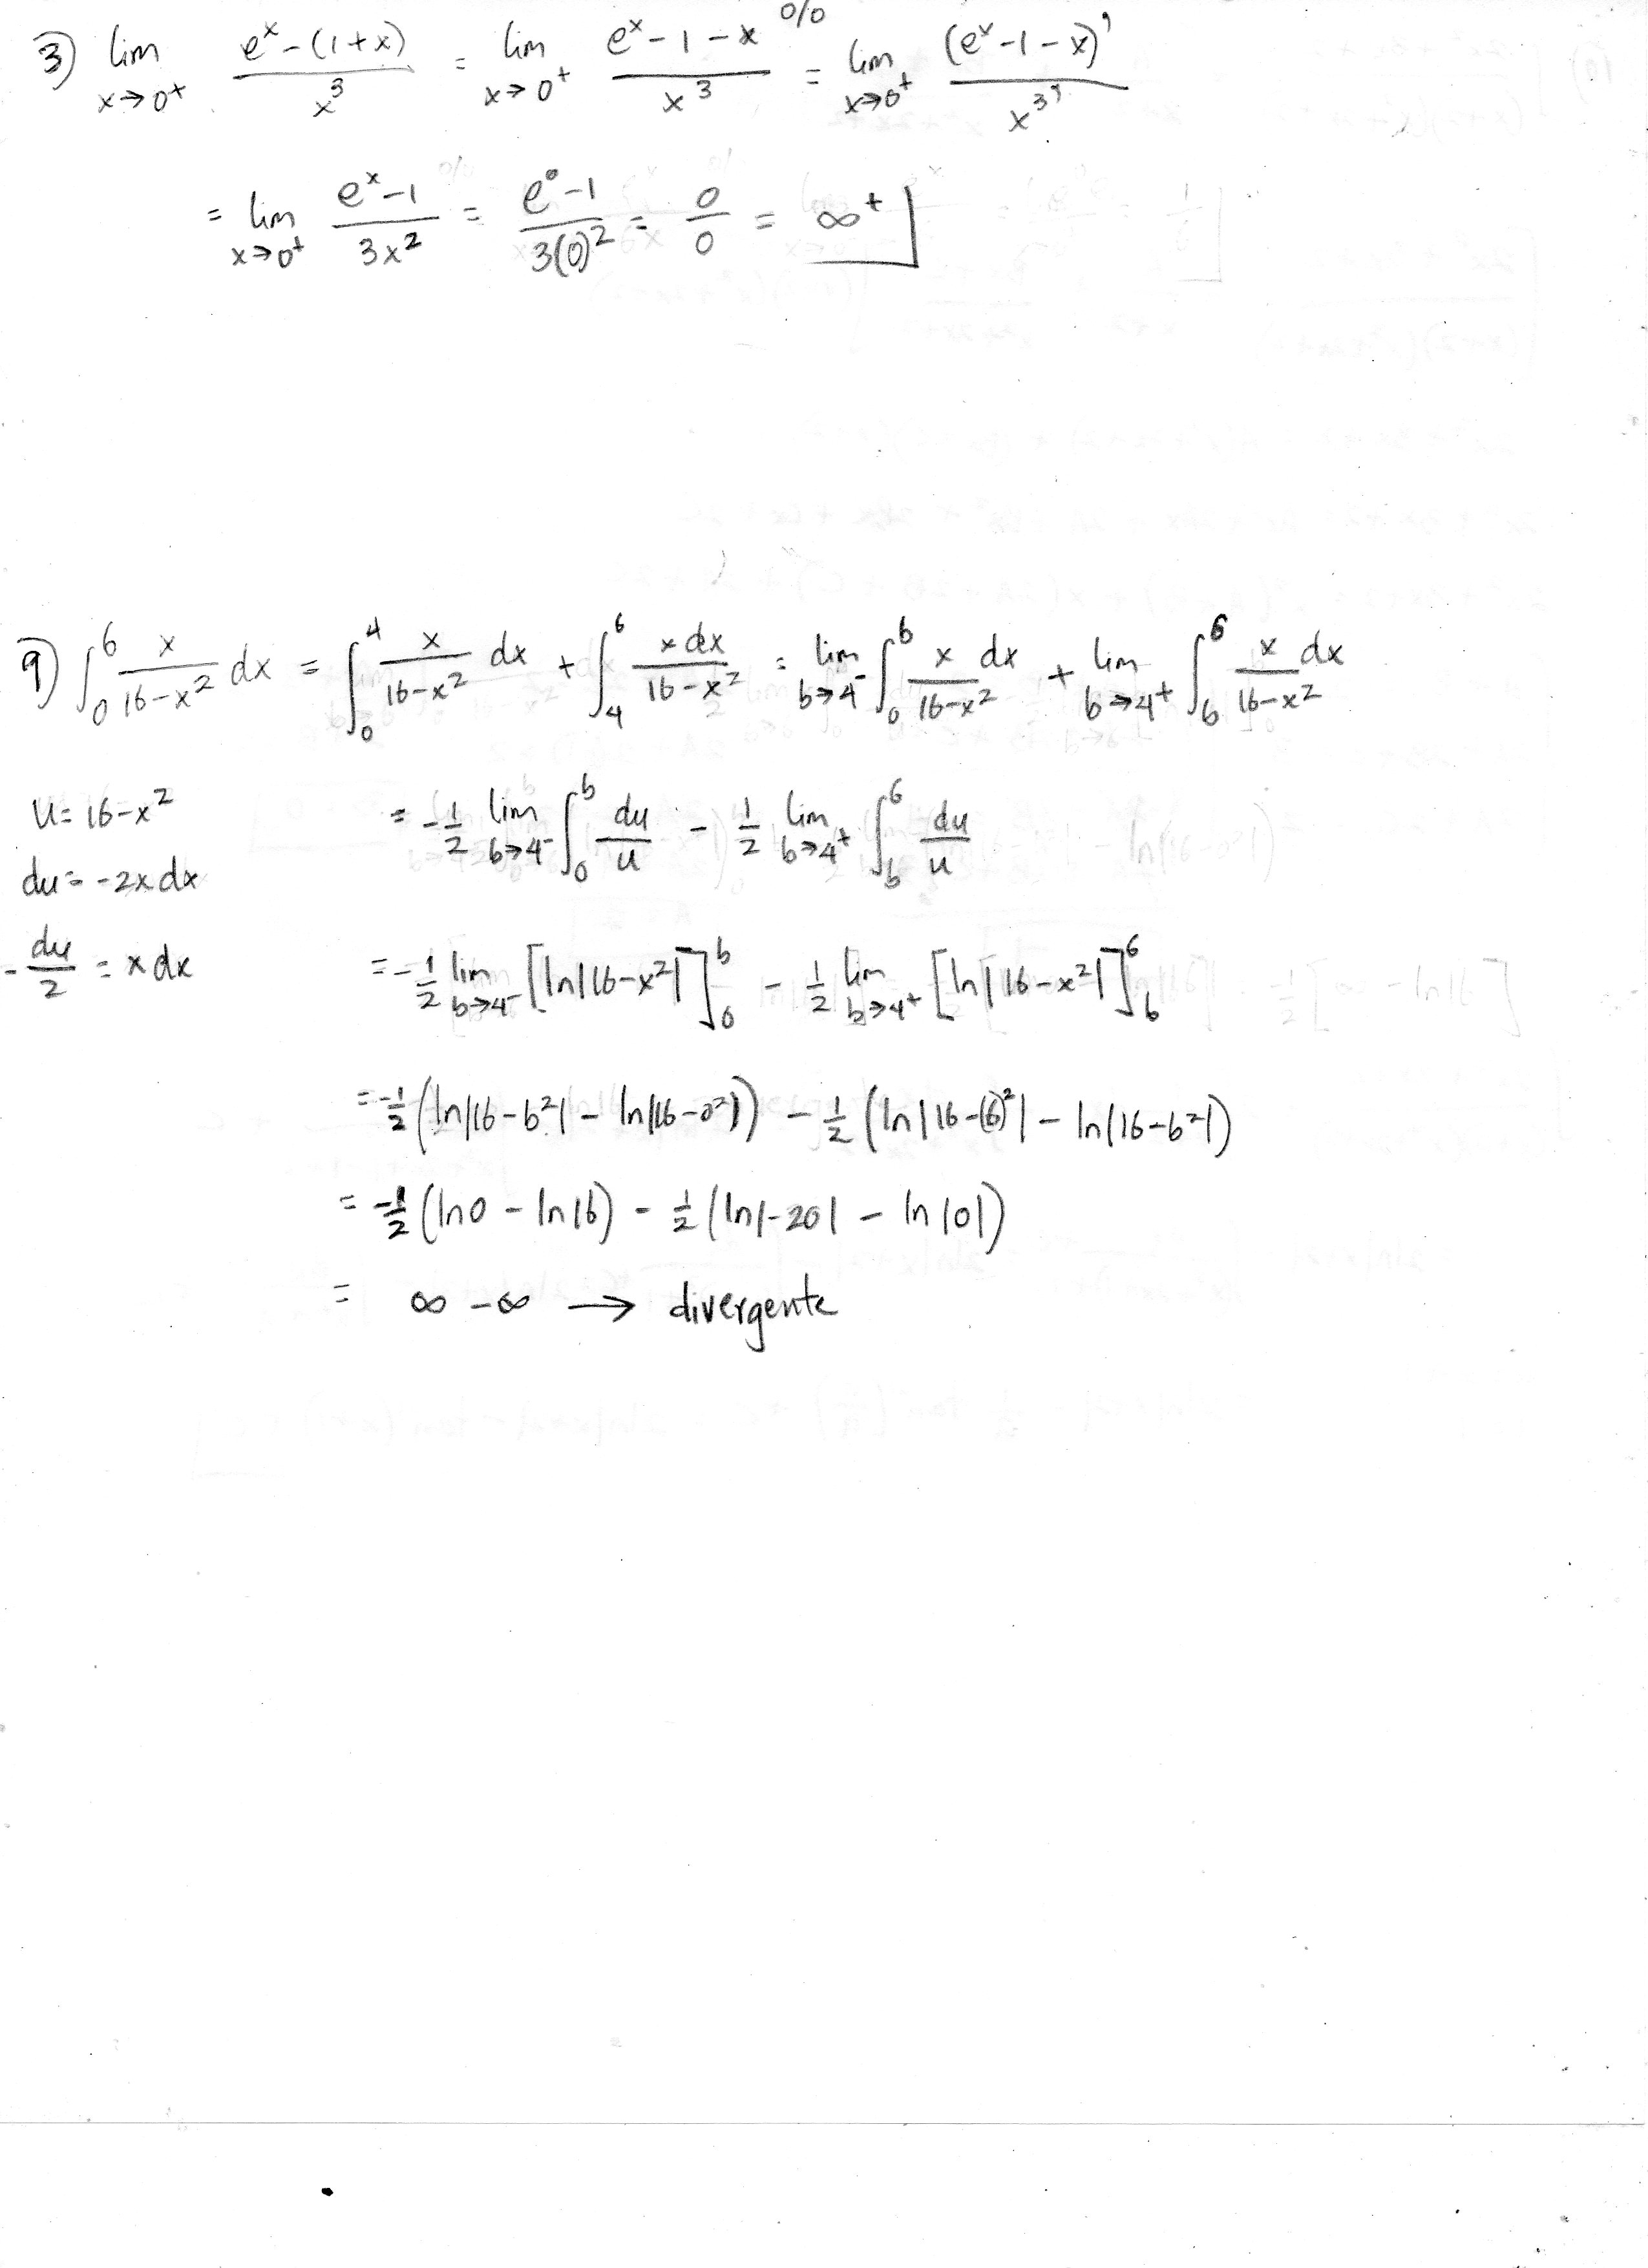 3) lim x→0⁺ (eˣ - (1+x))/x³ = lim x→0⁺ (eˣ - 1 - x)/x³ 0/0 = lim x→0⁺ (eˣ - 1 - x)'/x³'
= lim x→0⁺ (eˣ - 1)/3x² = (e⁰ - 1)/3(0)² = 0/0 = ∞⁺
9) ∫₀⁶ x/(16-x²) dx = ∫₀⁴ x/(16-x²) dx + ∫₄⁶ x dx/(16-x²) = lim b→4⁻ ∫₀ᵇ x dx/(16-x²) + lim b→4⁺ ∫ᵇ⁶ x dx/(16-x²)
u = 16-x² = -1/2 lim b→4⁻ ∫₀ᵇ du/u - 1/2 lim b→4⁺ ∫ᵇ⁶ du/u
du = -2x dx
-du/2 = x dx = -1/2 lim b→4⁻ [ln|16-x²|]₀ᵇ - 1/2 lim b→4⁺ [ln|16-x²|]ᵇ⁶
= -1/2 (ln|16-b²| - ln|16-0²|) - 1/2 (ln|16-(6)²| - ln|16-b²|)
= -1/2 (ln0 - ln16) - 1/2 (ln|-20| - ln|0|)
= ∞ - ∞ → divergente